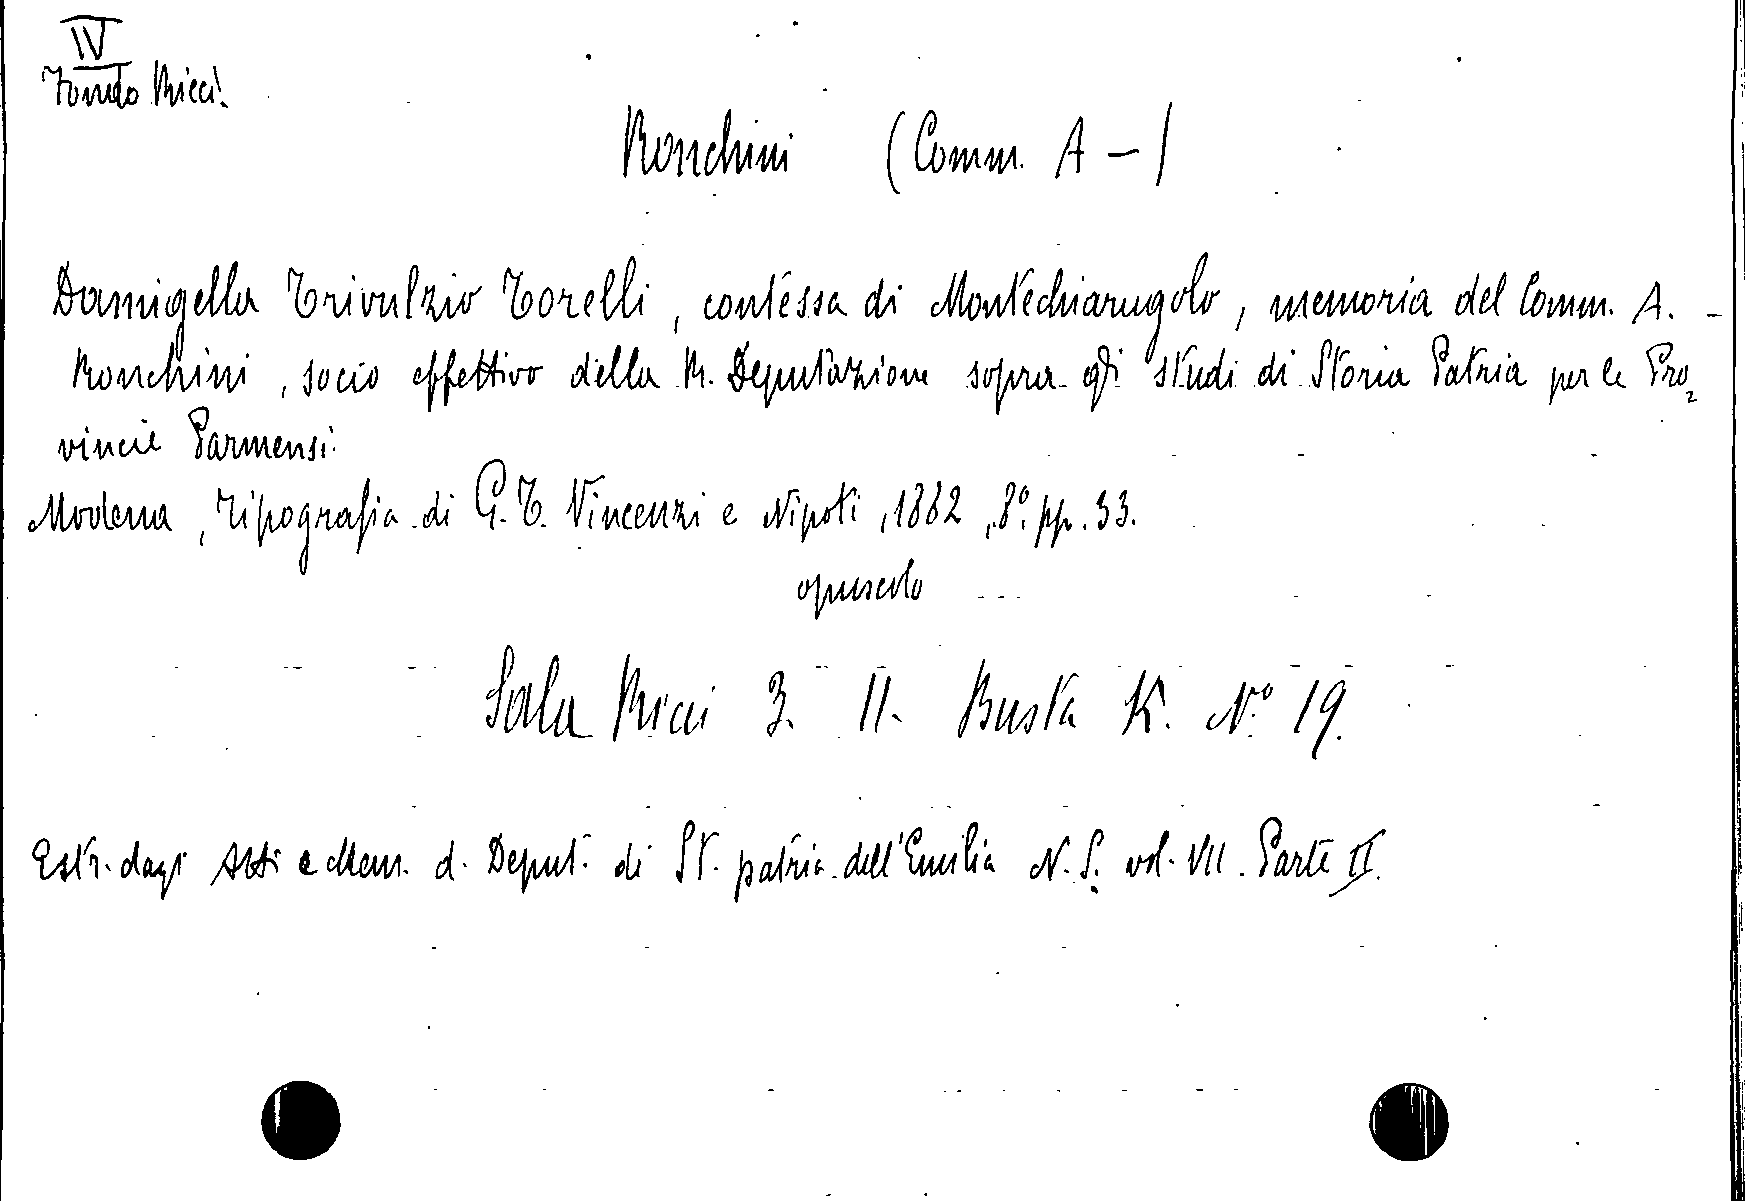 IV
Fondo Ricci.
Ronchini (Comm. A -)
Damigella Trivulzio Torelli, contessa di Montechiarugolo, memoria del Comm. A. -
Ronchini, socio effettivo della R. Deputazione sopra gli studi di Storia Patria per le Pro=
vincie Parmensi.
Modena, Tipografia di G. T. Vincenzi e Nipoti, 1882, 8°. pp. 33.
opuscolo
Sala Ricci 3. 11. Busta K. N.° 19.
Estr. dagi Atti e Mem. d. Deput. di St. patria dell'Emilia N. S. vol. VII. Parte II.